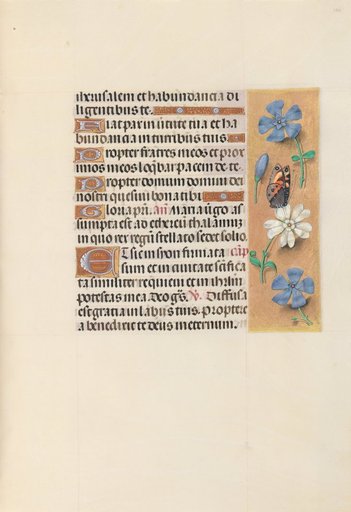 iherusalem et habundancia di
ligentibus te.
Fiat pax in virtute tua et ha
bundancia in turribus tuis.
Propter fratres meos et prox
imos meos loq̄bar pacem de te.
Propter domum domini dei
nostri quesivi bona tibi
Gloria pr̄. añ Maria v̄go as
sumpta est ad ethereū thalamū
in quo rex regū stellato sedet solio.
Et sic in sion firmata cap̄
sum et in civitate sc̄ifica
ta similiter requievi et in ihr̄lm
potestas mea. Deo gr̄s. v̄. Diffusa
est gratia in labiis tuis. propter e
a benedixit te deus in eternum.